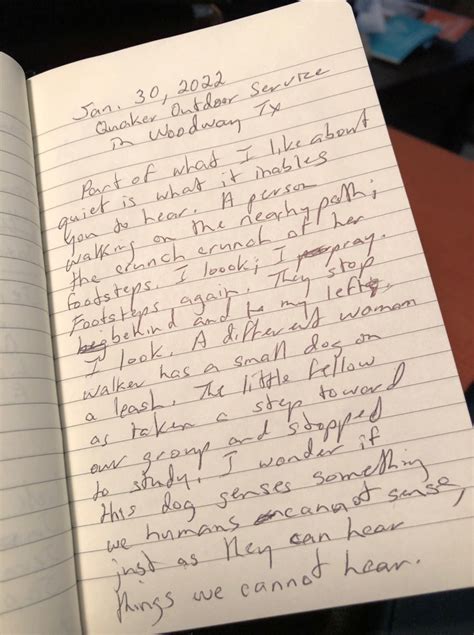 Jan. 30, 2022
Quaker Outdoor Service
in Woodway Tx
Part of what I like about
quiet is what it inables
you to hear. A person
walking on the nearby path;
the crunch crunch of her
footsteps. I loook; I pray.
Footsteps again. They stop
behind and to my left.
I look. A different woman
walker has a small dog on
a leash. The little fellow
as taken a step toward
our group and stopped
to study. I wonder if
this dog senses something
we humans cannot sense,
just as they can hear
things we cannot hear.